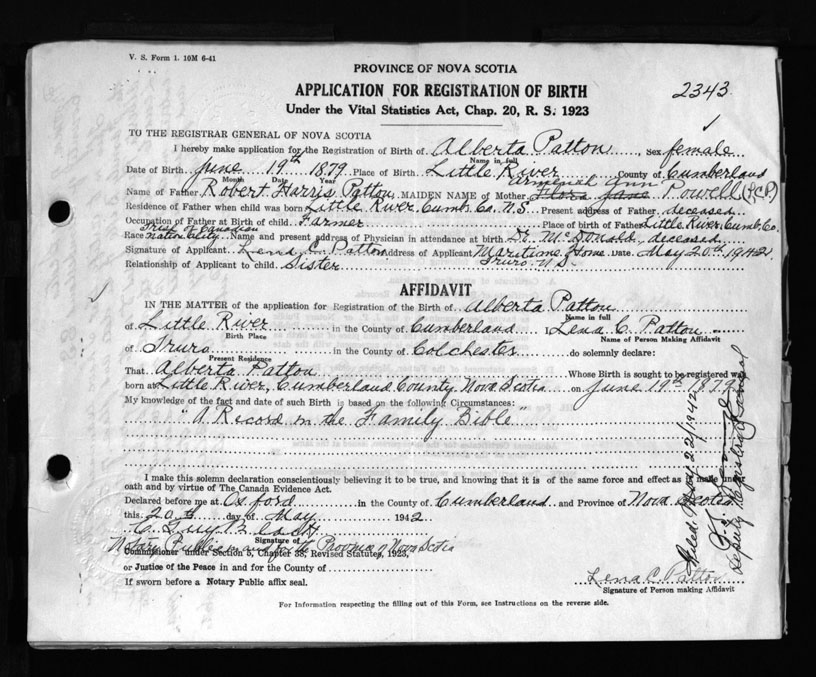 V. S. Form 1. 10M 6-41
PROVINCE OF NOVA SCOTIA
APPLICATION FOR REGISTRATION OF BIRTH
2343
Under the Vital Statistics Act, Chap. 20, R. S. 1923
TO THE REGISTRAR GENERAL OF NOVA SCOTIA
I hereby make application for the Registration of Birth of Alberta Patton, Sex female
Name in full
Date of Birth June 19th 1879 Place of Birth Little River County of Cumberland
Month Date Year
Armenial Ann
Name of Father Robert Harris Patton MAIDEN NAME of Mother Flora Jane Powell (LCP)
Residence of Father when child was born Little River, Cumb. Co. N.S. Present address of Father deceased
Occupation of Father at Birth of child Farmer Place of birth of Father Little River, Cumb. Co.
Irish of Canadian
Race Nationality Name and present address of Physician in attendance at birth Dr. McDonald, deceased
Signature of Applicant Lena C. Patton address of Applicant Maritime Home Date May 20th 1942
Relationship of Applicant to child Sister Truro N.S.
AFFIDAVIT
IN THE MATTER of the application for Registration of the Birth of Alberta Patton
Name in full
of Little River in the County of Cumberland I, Lena C. Patton
Birth Place Name of Person Making Affidavit
of Truro in the County of Colchester do solemnly declare:
Present Residence
That Alberta Patton Whose Birth is sought to be registered was
born at Little River, Cumberland County Nova Scotia on June 19th 1879
My knowledge of the fact and date of such Birth is based on the following Circumstances:
"A Record in the Family Bible"
I make this solemn declaration conscientiously believing it to be true, and knowing that it is of the same force and effect as if made under
oath and by virtue of The Canada Evidence Act.
Declared before me at Oxford in the County of Cumberland and Province of Nova Scotia
this 20th day of May 1942
C. Guy
Signature of
Notary Public in and for the Province of Nova Scotia
Commissioner under Section 5, Chapter 38, Revised Statutes, 1923,
or Justice of the Peace in and for the County of
If sworn before a Notary Public affix seal.
Lena C. Patton
Signature of Person making Affidavit
For Information respecting the filling out of this Form, see Instructions on the reverse side.
Filed May 22/1942
Deputy Registrar General